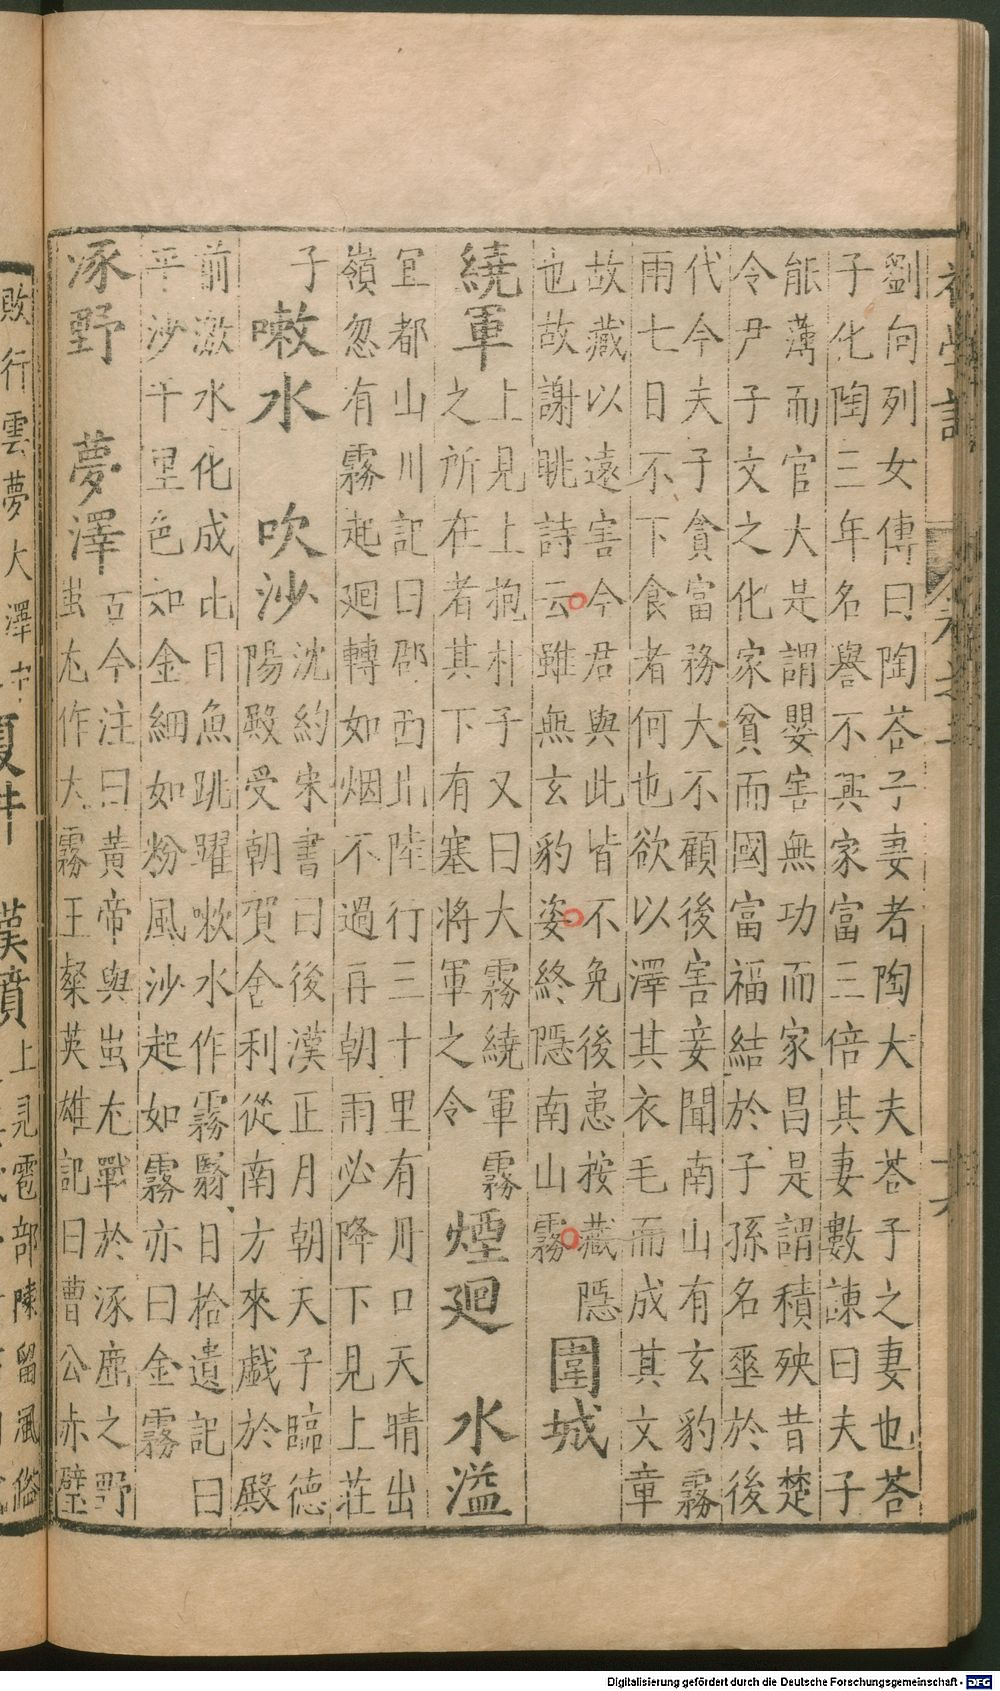 劉向列女傳曰陶荅子妻者陶大夫荅子之妻也荅
子化陶三年名譽不興家富三倍其妻數諫曰夫子
能薄而官大是謂嬰害無功而家昌是謂積殃昔楚
令尹子文之化家貧而國富福結於子孫名埀於後
代今夫子貪富務大不顧後害妾聞南山有玄豹霧
雨七日不下食者何也欲以澤其衣毛而成其文章
故藏以遠害今君與此皆不免後恚按藏隱
也故謝眺詩云雖無玄豹姿終隱南山霧
圍城
繞軍
上見上抱朴子又曰大霧繞軍霧
之所在者其下有塞將軍之令
煙廻 水溢
宜都山川記曰郡西北陸行三十里有丹口天晴出
嶺忽有霧起廻轉如烟不過再朝雨必降下見上荘
子
嗽水 吹沙
沈約宋書曰後漢正月朝天子臨德
陽殿受朝賀舍利從南方來戲於殿
前激水化成比目魚跳躍嗽水作霧翳日拾遺記曰
平沙千里色如金細如粉風沙起如霧亦曰金霧
涿野 夢澤
古今注曰黃帝與蚩尤戰於涿鹿之野
蚩尤作大霧王粲英雄記曰曹公赤壁
敗行雲夢大澤中
漢墳
上見雹部陳留風俗
Digitalisierung gefördert durch die Deutsche Forschungsgemeinschaft - DFG